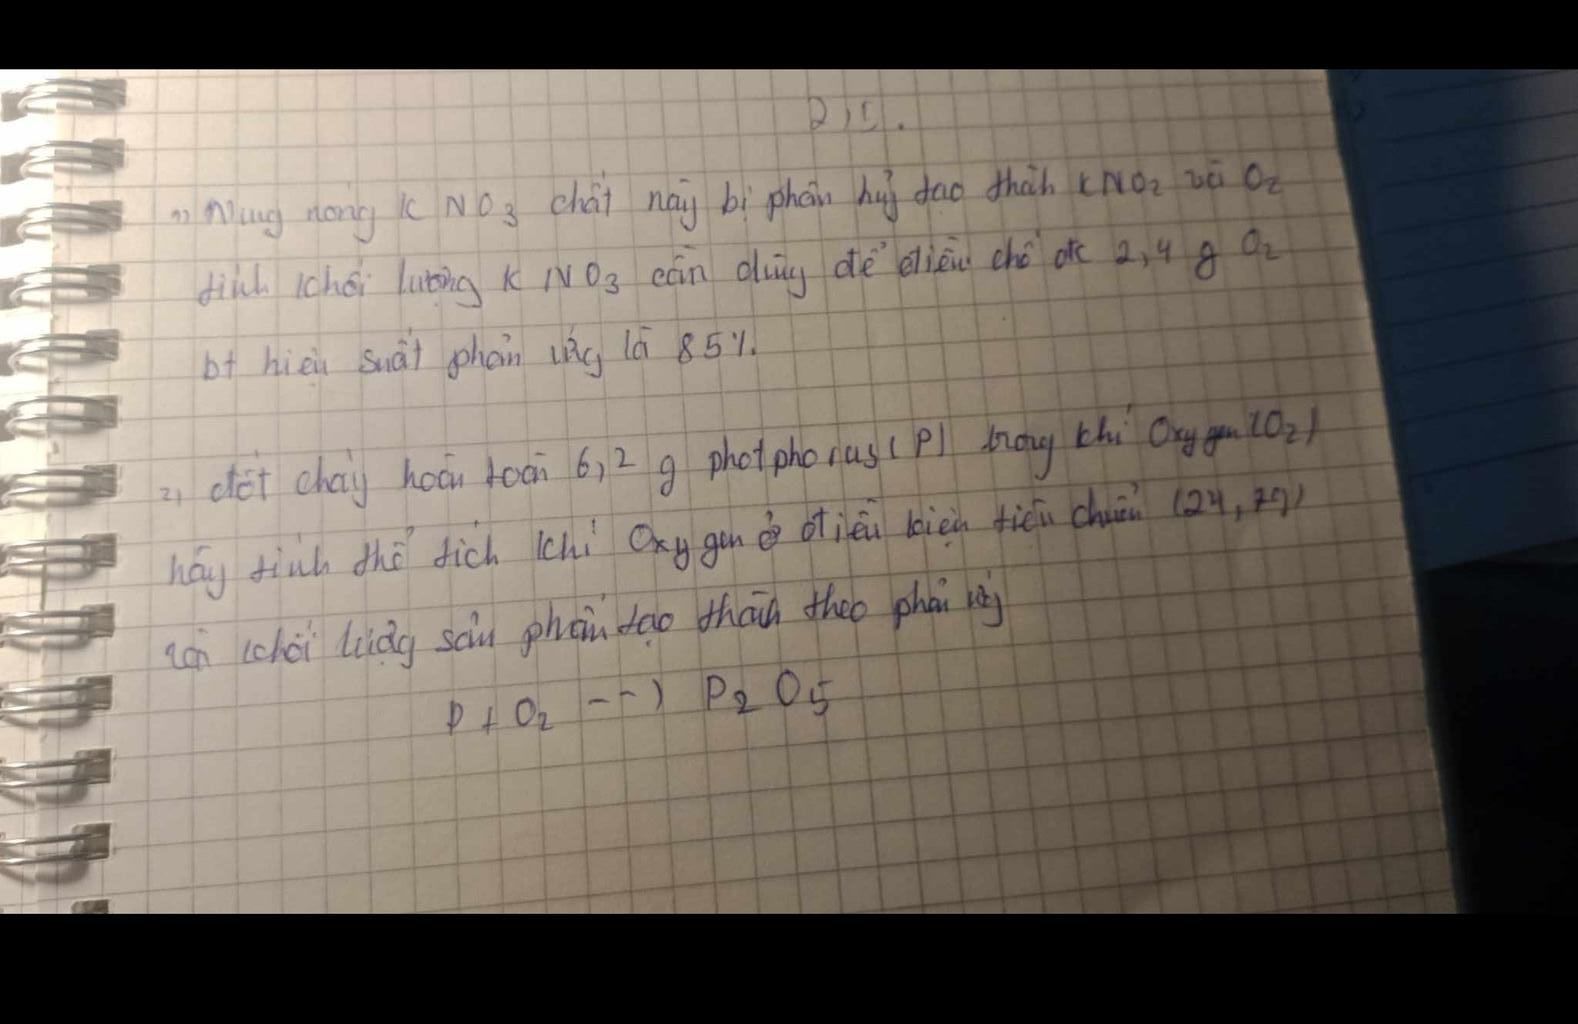 D, C.
1, Nung nóng KNO3 chất này bị phân hủy tạo thành KNO2 và O2
tính khối lượng KNO3 cần dùng để điều chế đc 2,4 g O2
bt hiệu suất phản ứng là 85%.
2, đốt cháy hoàn toàn 6,2 g photphorus (P) trong khí Oxygen (O2)
hãy tính thể tích khí Oxygen ở điều kiện tiêu chuẩn (24,79)
và khối lượng sản phẩm tạo thành theo phản ứng
P + O2 --) P2O5